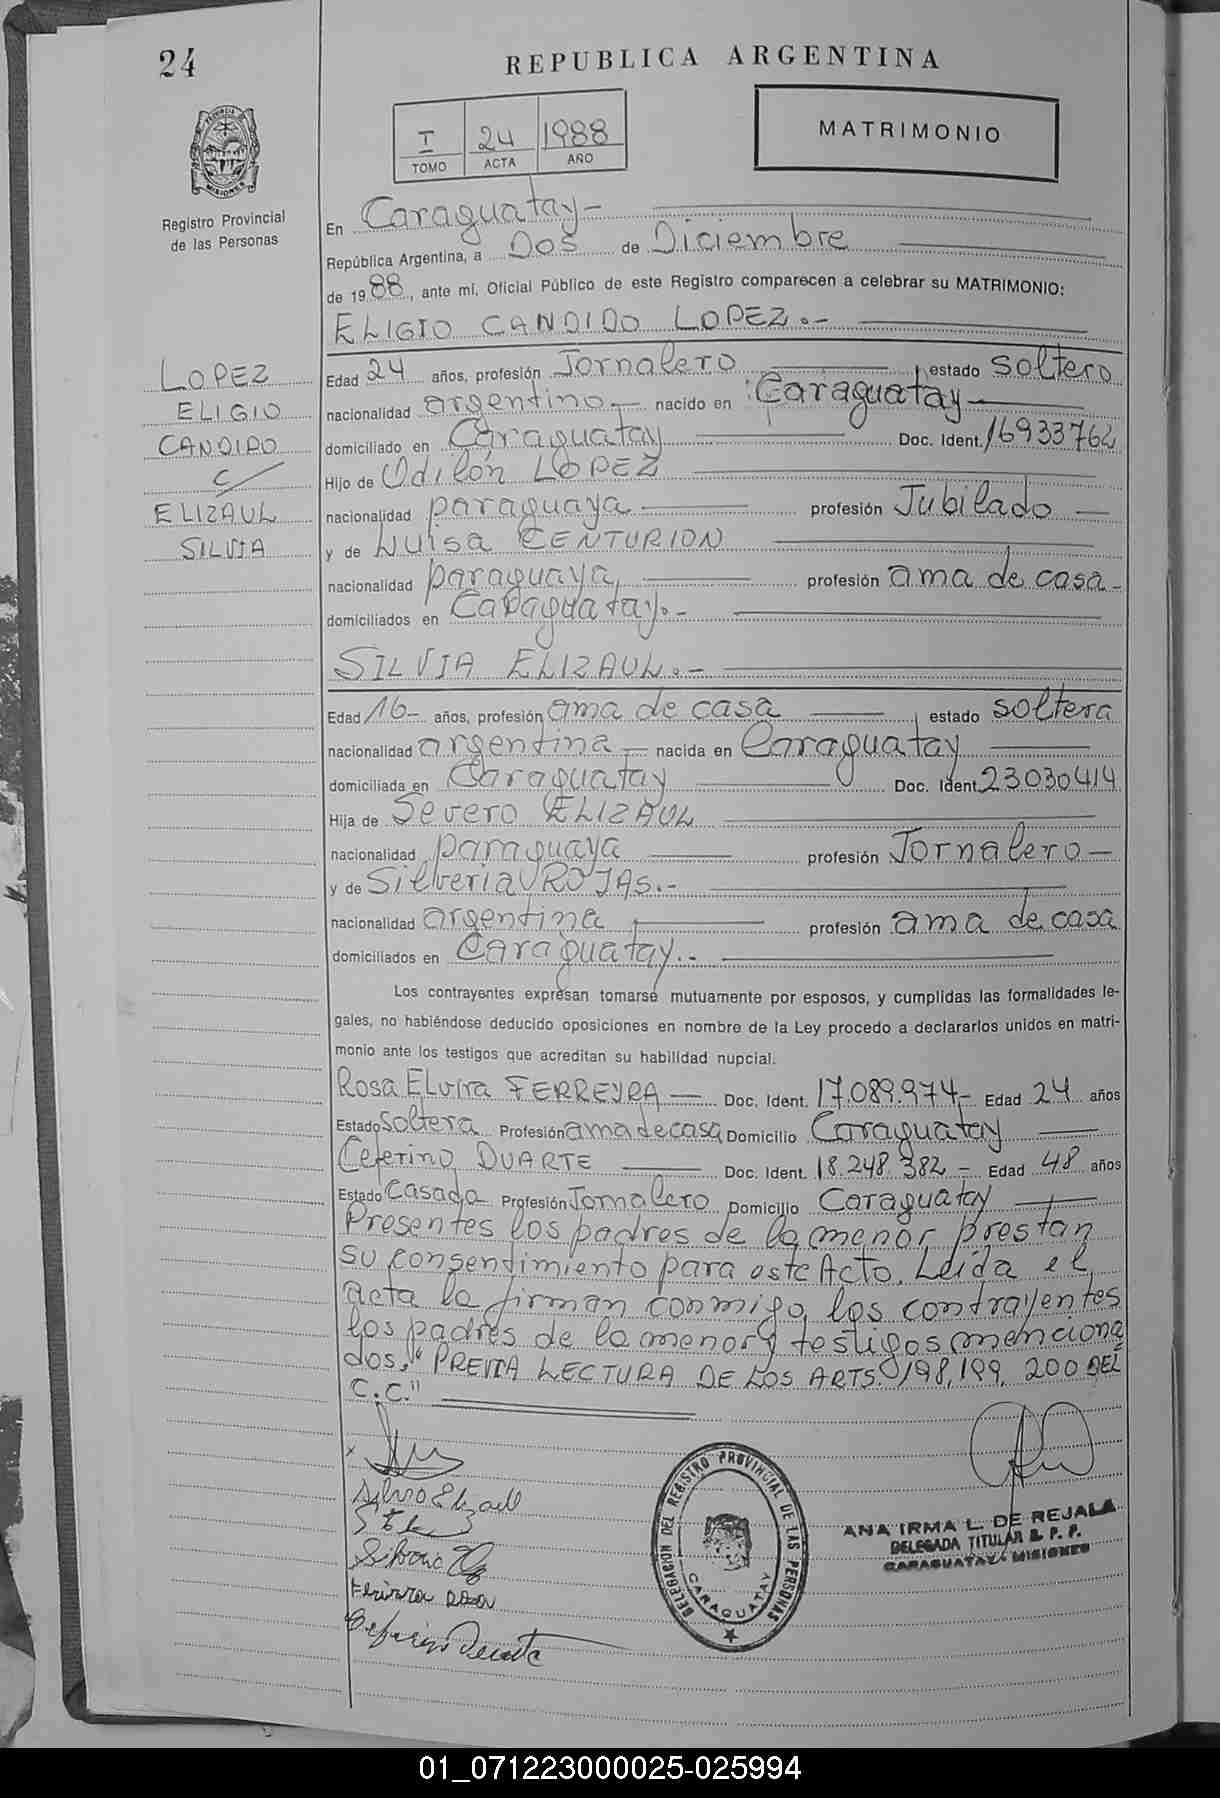 24
REPUBLICA ARGENTINA
I 24 1988
TOMO ACTA AÑO
MATRIMONIO
PROVINCIA DE MISIONES
Registro Provincial
de las Personas
En Caraguatay-
República Argentina, a Dos de Diciembre
de 1988, ante mí, Oficial Público de este Registro comparecen a celebrar su MATRIMONIO:
ELIGIO CANDIDO LOPEZ.-
LOPEZ
ELIGIO
CANDIDO
c/
ELIZAUL
SILVIA
Edad 24 años, profesión Jornalero estado soltero
nacionalidad argentino nacido en Caraguatay
domiciliado en Caraguatay Doc. Ident. 16933762
Hijo de Odilón LOPEZ
nacionalidad paraguaya profesión Jubilado
y de Luisa CENTURION
nacionalidad paraguaya profesión ama de casa-
domiciliados en Caraguatay.-
SILVIA ELIZAUL.-
Edad 16- años, profesión ama de casa estado soltera
nacionalidad argentina nacida en Caraguatay
domiciliada en Caraguatay Doc. Ident. 23030414
Hija de Severo ELIZAUL
nacionalidad paraguaya profesión Jornalero-
y de Silveria ROJAS.-
nacionalidad argentina profesión ama de casa
domiciliados en Caraguatay.-
Los contrayentes expresan tomarse mutuamente por esposos, y cumplidas las formalidades le-
gales, no habiéndose deducido oposiciones en nombre de la Ley procedo a declararlos unidos en matri-
monio ante los testigos que acreditan su habilidad nupcial.
Rosa Elvira FERREYRA Doc. Ident. 17.089.974- Edad 24 años
Estado soltera Profesión ama de casa Domicilio Caraguatay
Ceferino DUARTE Doc. Ident. 18.248.382- Edad 48 años
Estado Casado Profesión Jornalero Domicilio Caraguatay
Presentes los padres de la menor prestan
su consendimiento para este Acto. Leida el
acta la firman conmigo, los contrayentes
los padres de la menor y testigos menciona
dos." PREVIA LECTURA DE LOS ARTS. 198, 199, 200 DEL
C.C."
DELEGACION DEL REGISTRO PROVINCIAL DE LAS PERSONAS
CARAGUATAY
ANA IRMA L. DE REJALA
DELEGADA TITULAR R. P. P.
CARAGUATAY - MISIONES
01_071223000025-025994